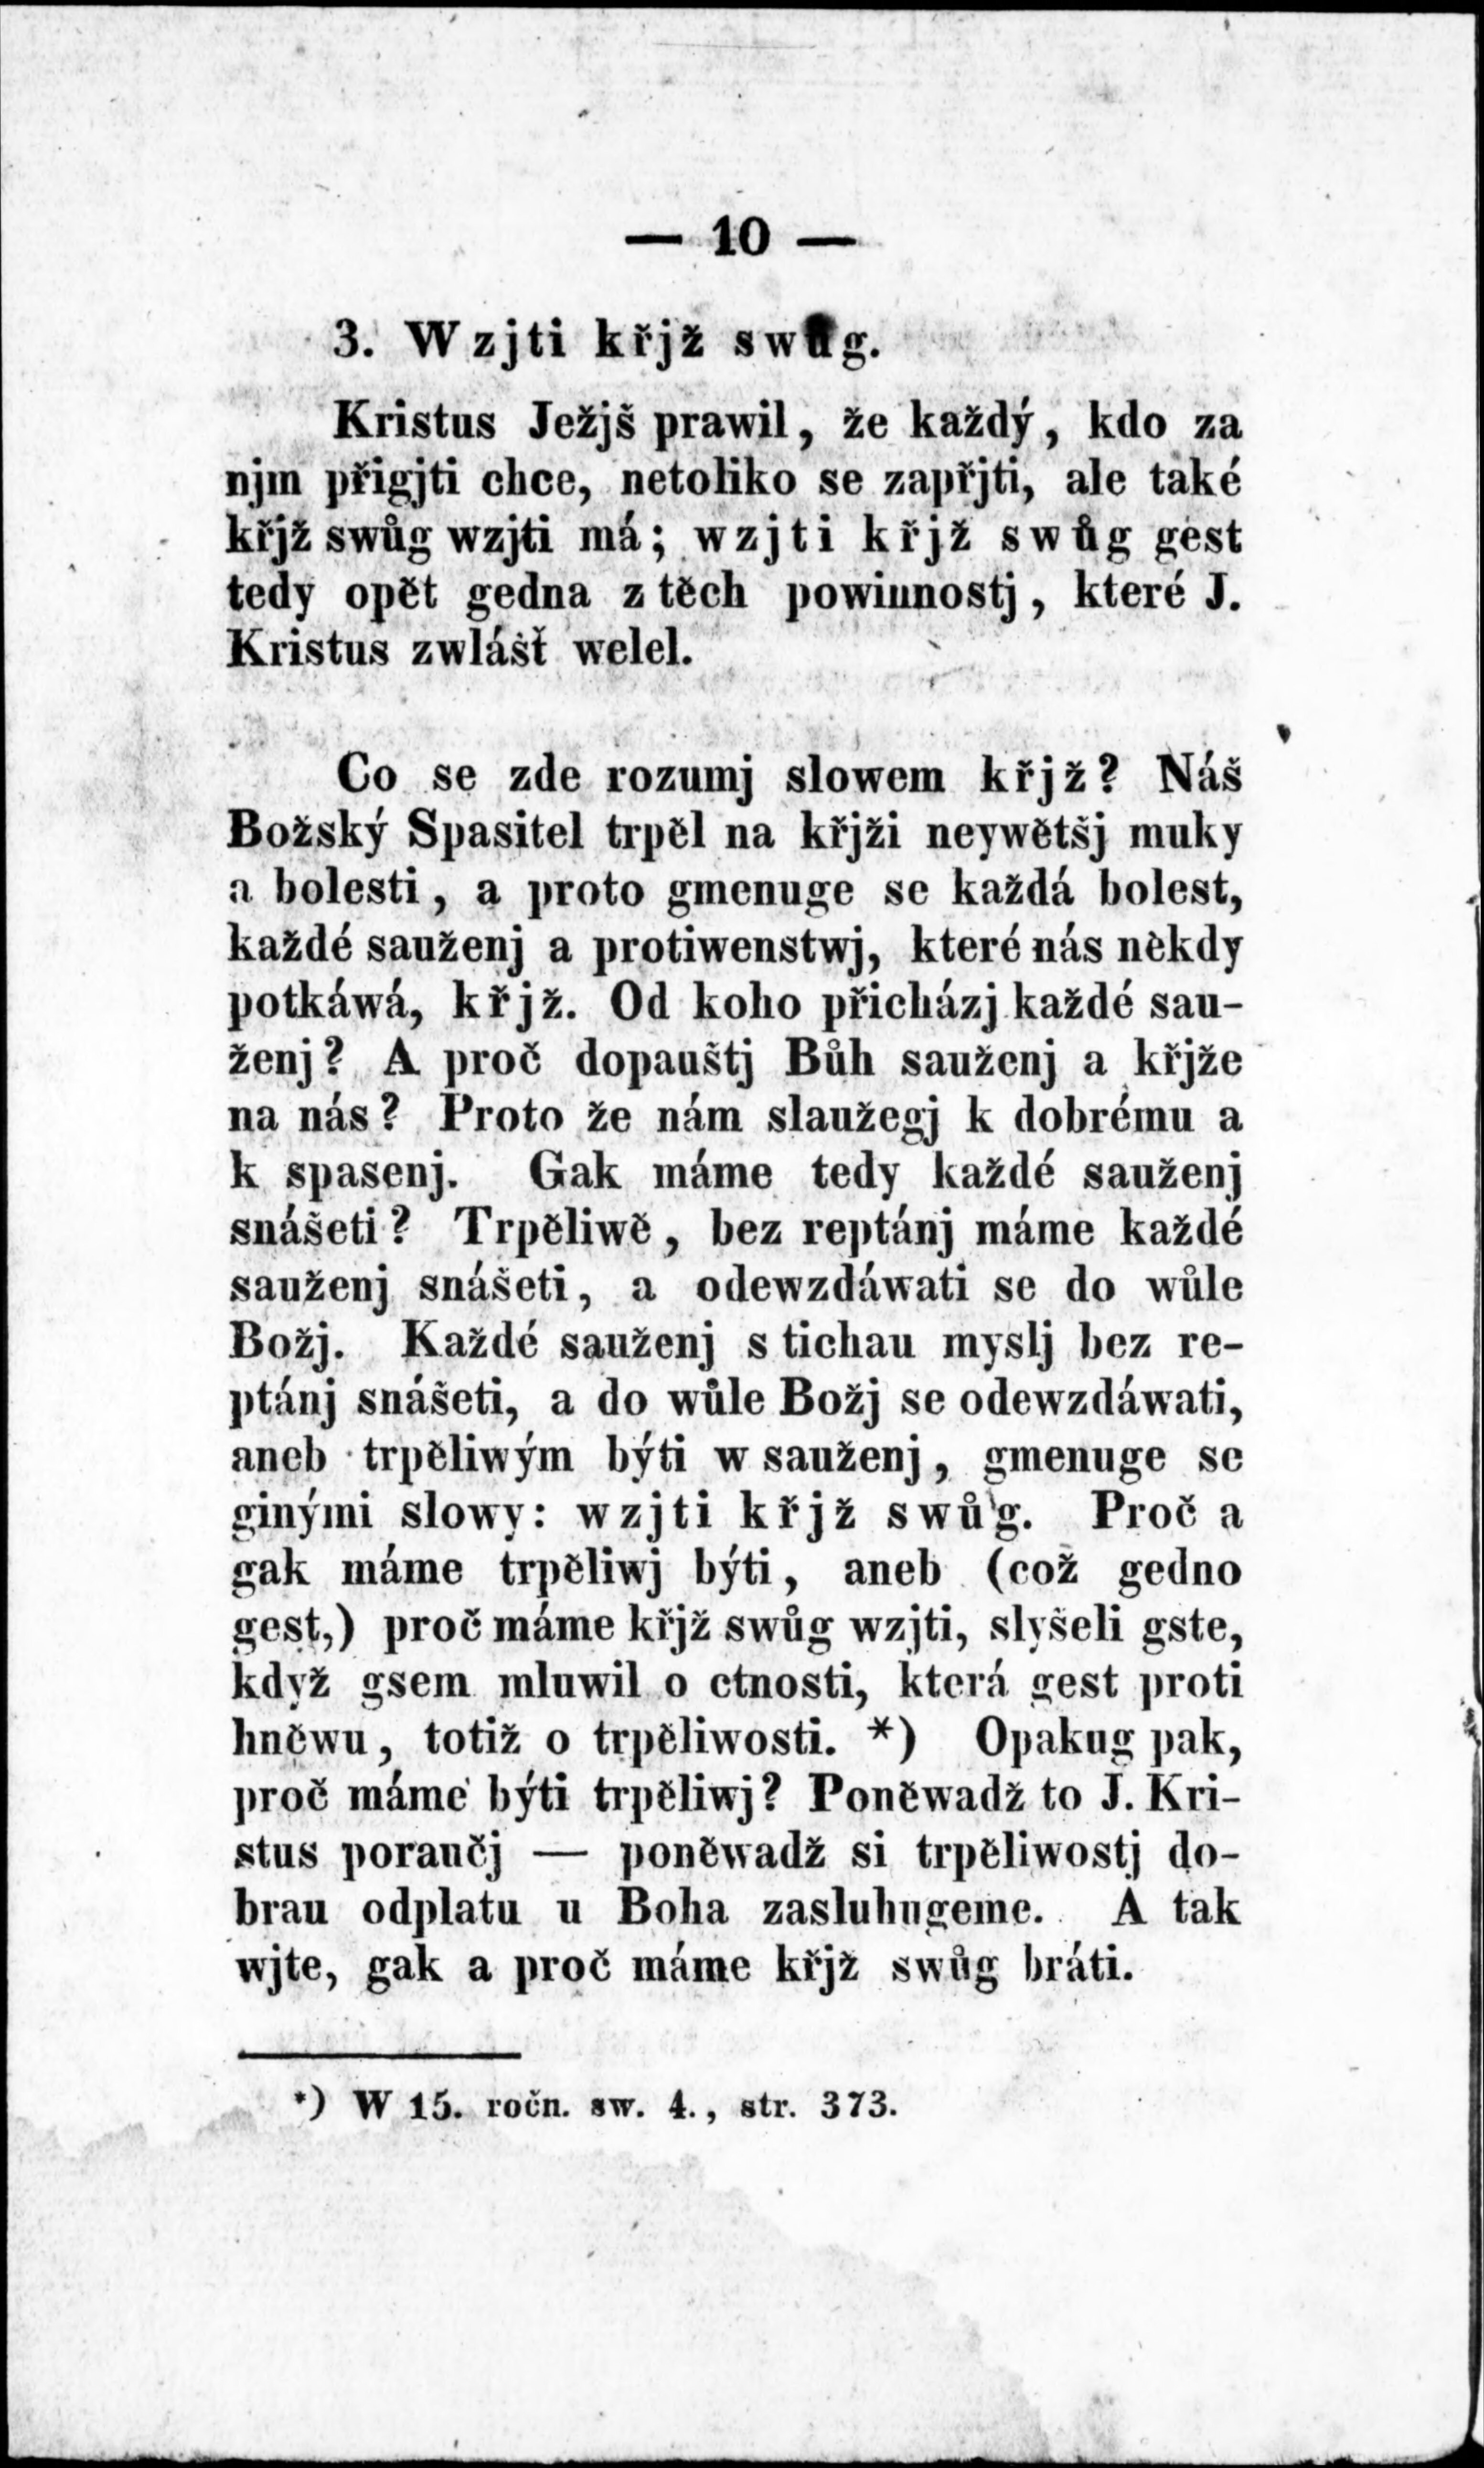 — 10 —
3. Wzjti křjž swůg.
Kristus Ježjš prawil, že každý, kdo za
njm přigjti chce, netoliko se zapřjti, ale také
křjž swůg wzjti má; wzjti křjž swůg gest
tedy opět gedna z těch powinnostj, které J.
Kristus zwlášť welel.
Co se zde rozumj slowem křjž? Náš
Božský Spasitel trpěl na křjži neywětšj muky
a bolesti, a proto gmenuge se každá bolest,
každé sauženj a protiwenstwj, které nás někdy
potkáwá, křjž. Od koho přicházj každé sau-
ženj? A proč dopauštj Bůh sauženj a křjže
na nás? Proto že nám slaužegj k dobrému a
k spasenj. Gak máme tedy každé sauženj
snášeti? Trpěliwě, bez reptánj máme každé
sauženj snášeti, a odewzdáwati se do wůle
Božj. Každé sauženj s tichau myslj bez re-
ptánj snášeti, a do wůle Božj se odewzdáwati,
aneb trpěliwým býti w sauženj, gmenuge se
ginými slowy: wzjti křjž swůg. Proč a
gak máme trpěliwj býti, aneb (což gedno
gest,) proč máme křjž swůg wzjti, slyšeli gste,
když gsem mluwil o ctnosti, která gest proti
hněwu, totiž o trpěliwosti. *) Opakug pak,
proč máme býti trpěliwj? Poněwadž to J. Kri-
stus poraučj — poněwadž si trpěliwostj do-
brau odplatu u Boha zasluhugeme. A tak
wjte, gak a proč máme křjž swůg bráti.
*) W 15. ročn. sw. 4., str. 373.